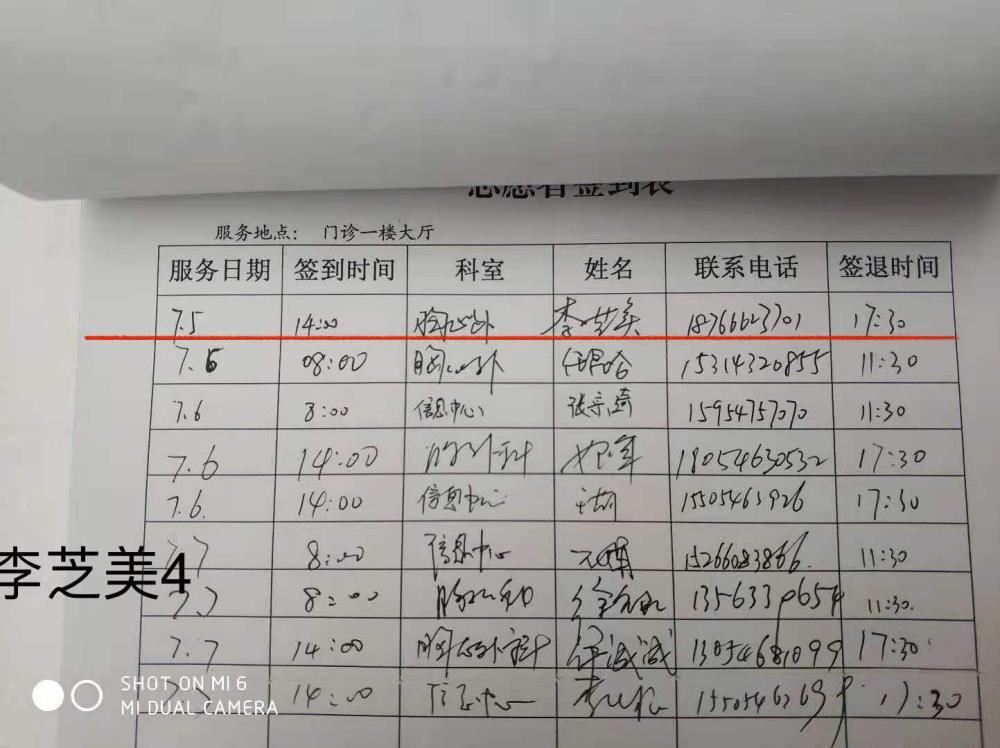 志愿者签到表
服务地点： 门诊一楼大厅
服务日期 签到时间 科室 姓名 联系电话 签退时间
7.5 14:00 胸心外 李芝美 18766623701 17:30
7.6 08:00 胸心外 15314320855 11:30
7.6 8:00 信息中心 张宗琦 15954757070 11:30
7.6 14:00 18054630532 17:30
7.6. 14:00 信息中心 15505463926 17:30
7.7 8:00 信息中心 15266083866. 11:30
8:00 11:30.
7.7 14:00 胸心外科 13054681099 17:30
14:00 信息中心 17:30
李芝美4
SHOT ON MI 6
MI DUAL CAMERA